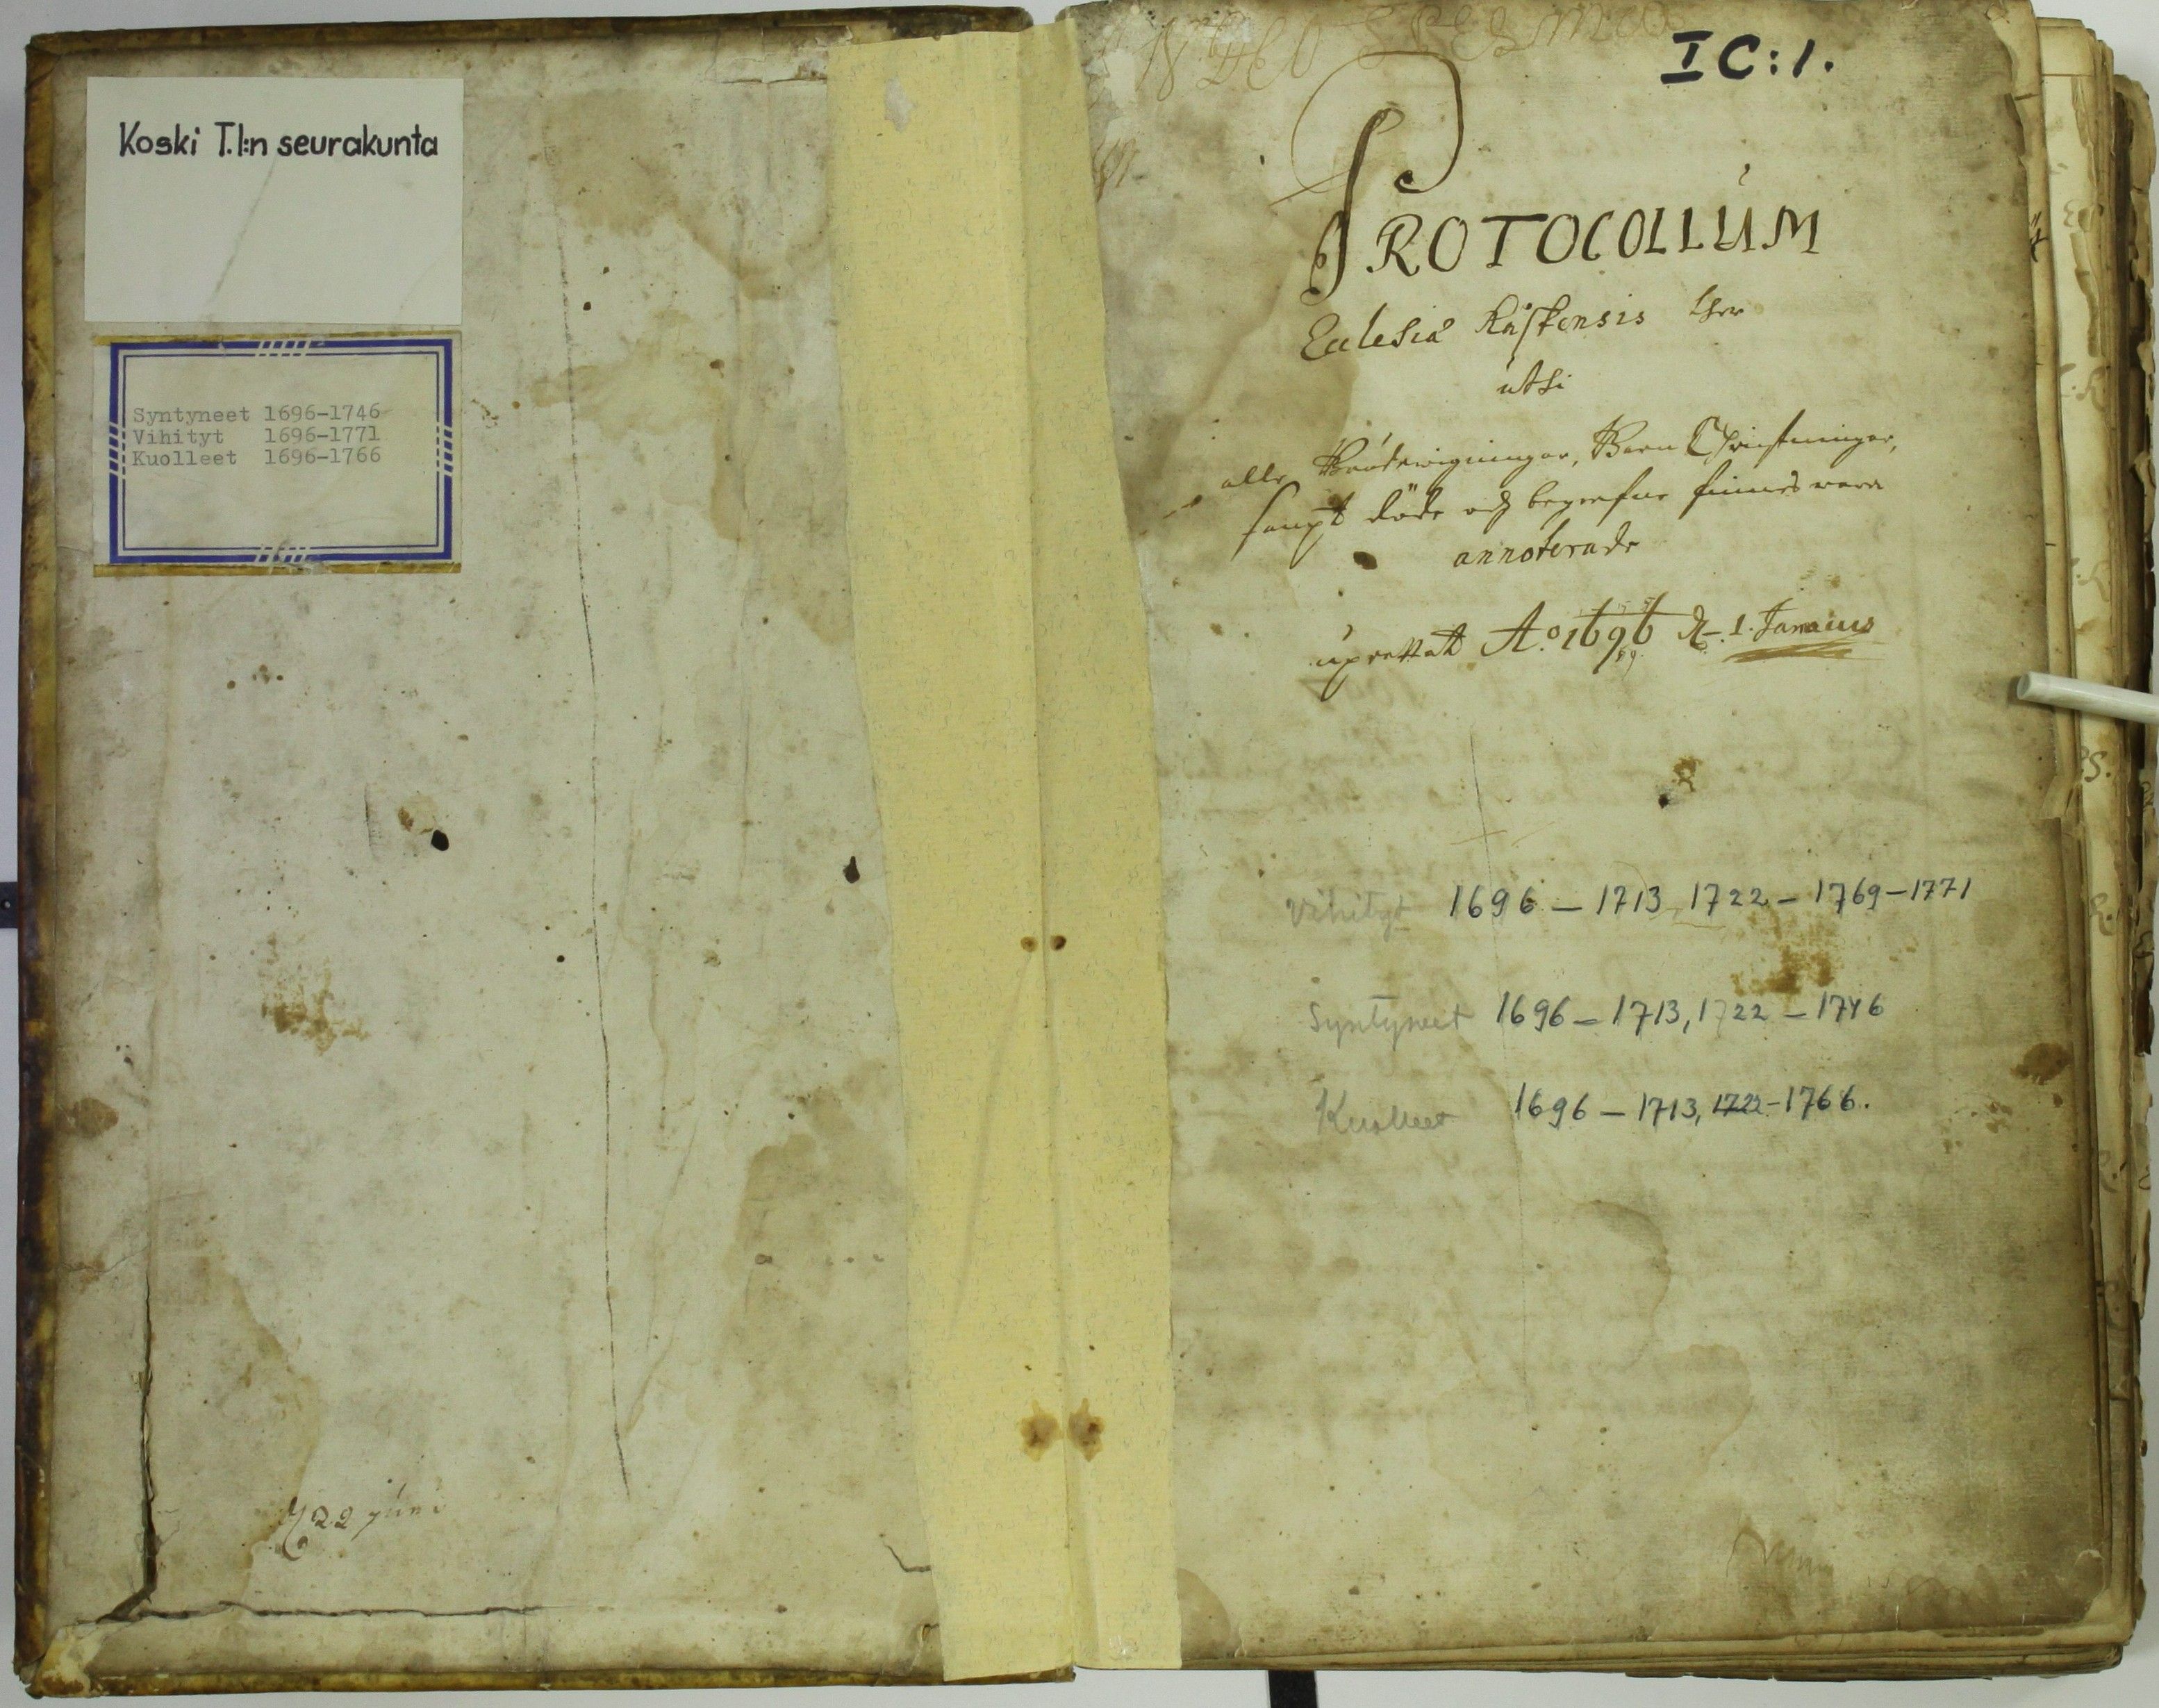 Koski T.l:n seurakunta
Syntyneet 1696-1746
Vihityt 1696-1771
Kuolleet 1696-1766
22 juni
IN DEO SPES MEA
I C:1.
PROTOCOLLUM
Ecclesiæ Kåskensis ther
uthi
alle Brudewigningar, Barn Christninger,
sampt döde och begrafne finnes ware
annoterade
uprettat A:o 1696 d. 1. Januarius
Vihityt 1696 - 1713, 1722 - 1769-1771
Syntyneet 1696 - 1713, 1722 - 1746
Kuolleet 1696 - 1713, 1722-1766.